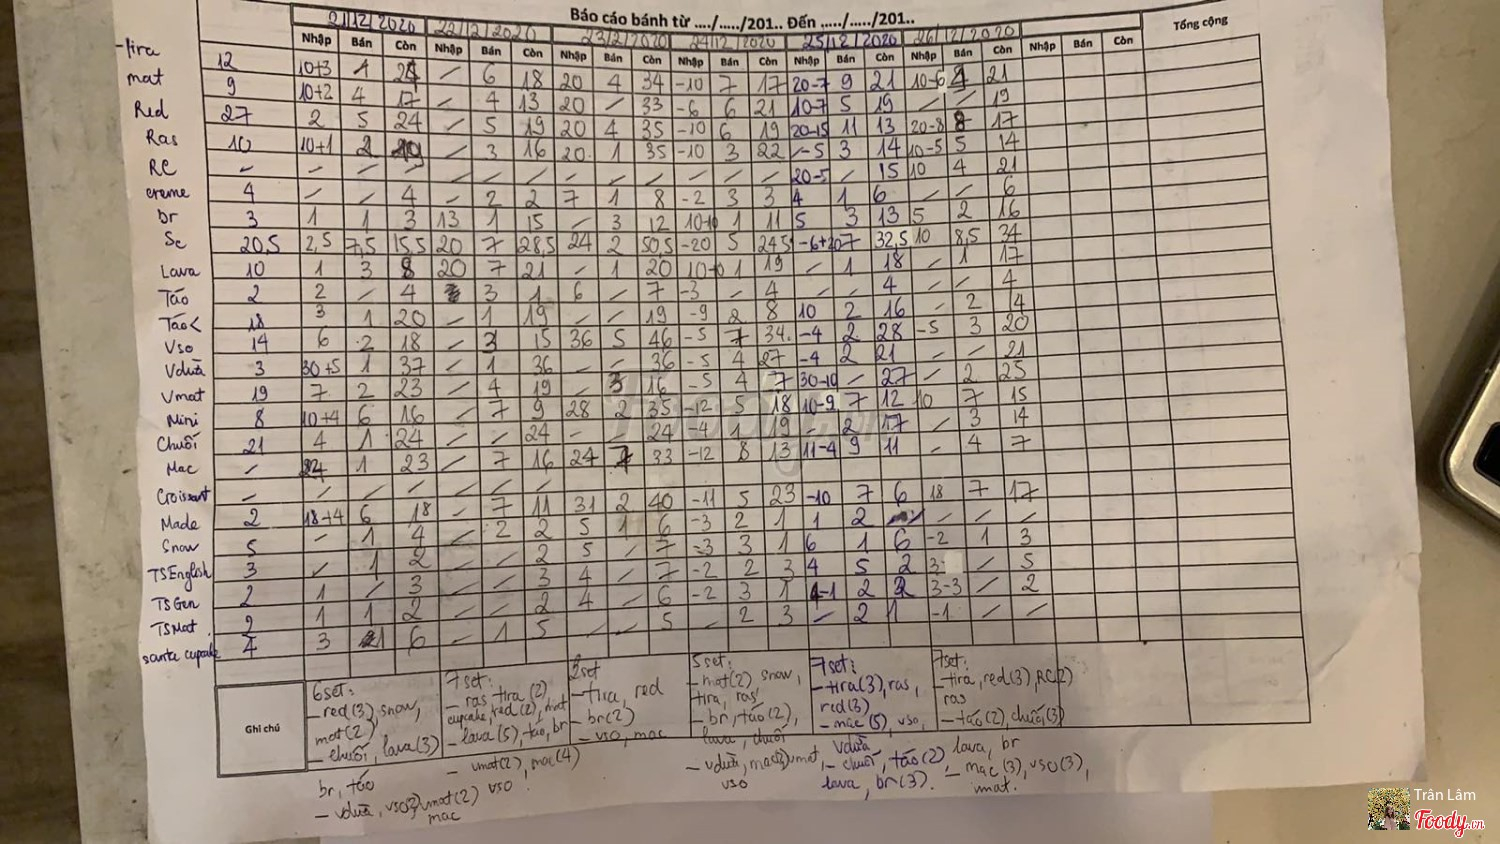 Báo cáo bánh từ ..../...../201.. Đến ...../...../201..
21/12/2020 22/12/2020 23/12/2020 24/12/2020 25/12/2020 26/12/2020 Tổng cộng
Nhập Bán Còn Nhập Bán Còn Nhập Bán Còn Nhập Bán Còn Nhập Bán Còn Nhập Bán Còn Nhập Bán Còn
tira 12 10+3 1 24 / 6 18 20 4 34 -10 7 17 20-7 9 21 10-6 4 21
mat 9 10+2 4 17 / 4 13 20 / 33 -6 6 21 10-7 5 19 / / 19
Red 27 2 5 24 / 5 19 20 4 35 -10 6 19 20-15 11 13 20-8 8 17
Ras 10 10+1 2 19 / 3 16 20 1 35 -10 3 22 /-5 3 14 10-5 5 14
RC / / / / / / / / / / / / / 20-5 / 15 10 4 21
creme 4 / / 4 / 2 2 7 1 8 -2 3 3 4 1 6 / / 6
br 3 1 1 3 13 1 15 / 3 12 10-10 1 11 5 3 13 5 2 16
Sc 20,5 2,5 7,5 15,5 20 7 28,5 24 2 50,5 -20 5 24,5 -6+20 7 32,5 10 8,5 34
Lava 10 1 3 8 20 7 21 / 1 20 10-10 1 19 / 1 18 / 1 17
Táo 2 2 / 4 3 1 6 / 7 -3 / 4 / / 4 / / 4
Táo< 18 3 1 20 / 1 19 / / 19 -9 2 8 10 2 16 / 2 14
Vso 14 6 2 18 / 3 15 36 5 46 -5 7 34 -4 2 28 -5 3 20
Vdừa 3 30+5 1 37 / 1 36 / / 36 -5 4 27 -4 2 21 / / 21
Vmat 19 7 2 23 / 4 19 / 3 16 -5 4 7 30-10 / 27 / 2 25
Mini 8 10+4 6 16 / 7 9 28 2 35 -12 5 18 10-9 7 12 10 7 15
Chuối 21 4 1 24 / / 24 / / 24 -4 1 19 / 2 17 / 3 14
Mac / 24 1 23 / 7 16 24 7 33 -12 8 13 11-4 9 11 / 4 7
Croissant / / / / / / /
Made 2 18+4 6 18 / 7 11 31 2 40 -11 5 23 -10 7 6 18 7 17
Snow 5 / 1 4 / 2 2 5 1 6 -3 2 1 1 2 / / /
TSEnglish 3 / 1 2 / / 2 5 / 7 -3 3 1 6 1 6 -2 1 3
TSGen 2 1 / 3 / / 3 4 / 7 -2 2 3 4 5 2 3 / 5
TSMat 2 1 1 2 / / 2 4 / 6 -2 3 1 4-1 2 2 3-3 / 2
santa cupcake 4 3 1 6 / 1 5 / / 5 / 2 3 / 2 1 -1 / /
Ghi chú
6set:
- red(3), snow,
mat(2),
- chuối, lava(3)
br, táo
- vdừa, vso, vmat(2)
mac
7set:
- ras, tira(2),
cupcake, red(2), mat
- lava(5), táo, br
- vmat(2), mac(4)
vso
2set
- tira, red
- br(2)
- vso, mac
5set:
- mat(2) snow,
tira, ras
- br, táo(2),
lava, chuối
- vdừa, mac(3), vmat,
vso
7set:
- tira(3), ras,
red(3)
- mac(5), vso,
vdừa
- chuối, táo(2)
lava, br(3).
7set:
- tira, red(3), RC(2)
ras
- táo(2), chuối(3)
lava, br
- mac(3), vso(3),
vmat.
Trân Lâm
Foody.vn